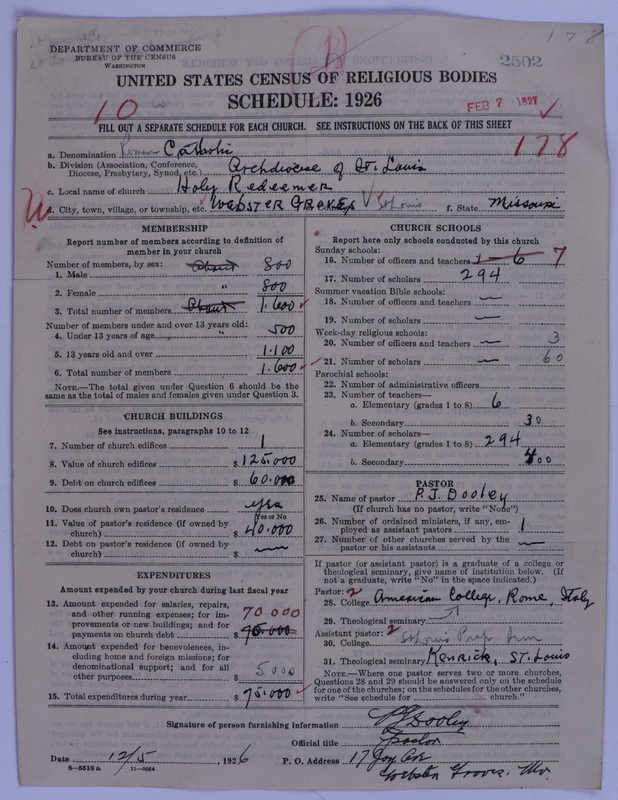 178
DEPARTMENT OF COMMERCE
BUREAU OF THE CENSUS
WASHINGTON
2502
UNITED STATES CENSUS OF RELIGIOUS BODIES
SCHEDULE: 1926
10
FEB 7 1927
FILL OUT A SEPARATE SCHEDULE FOR EACH CHURCH. SEE INSTRUCTIONS ON THE BACK OF THIS SHEET
178
a. Denomination Roman Catholic
b. Division (Association, Conference, Diocese, Presbytery, Synod, etc.) Archdiocese of St. Louis
c. Local name of church Holy Redeemer
d. City, town, village, or township, etc. WEBSTER GROVES St Louis f. State Missouri
MEMBERSHIP
Report number of members according to definition of member in your church
Number of members, by sex: About
1. Male 800
2. Female " 800
3. Total number of members About 1.600
Number of members under and over 13 years old:
4. Under 13 years of age " 500
5. 13 years old and over 1.100
6. Total number of members 1.600
NOTE.—The total given under Question 6 should be the same as the total of males and females given under Question 3.
CHURCH BUILDINGS
See instructions, paragraphs 10 to 12
7. Number of church edifices 1
8. Value of church edifices $ 125.000
9. Debt on church edifices $ 60.000
10. Does church own pastor's residence yes
Yes or No
11. Value of pastor's residence (if owned by church) $ 40.000
12. Debt on pastor's residence (if owned by church) $ —
EXPENDITURES
Amount expended by your church during last fiscal year
13. Amount expended for salaries, repairs, and other running expenses; for improvements or new buildings; and for payments on church debt $ 75.000 70 000
14. Amount expended for benevolences, including home and foreign missions; for denominational support; and for all other purposes $ 5000
15. Total expenditures during year $ 75.000
CHURCH SCHOOLS
Report here only schools conducted by this church
Sunday schools:
16. Number of officers and teachers 1-6 7
17. Number of scholars 294
Summer vacation Bible schools:
18. Number of officers and teachers —
19. Number of scholars —
Week-day religious schools:
20. Number of officers and teachers — 3
21. Number of scholars — 60
Parochial schools:
22. Number of administrative officers
23. Number of teachers—
a. Elementary (grades 1 to 8) 6
b. Secondary 30
24. Number of scholars—
a. Elementary (grades 1 to 8) 294
b. Secondary 400
PASTOR
25. Name of pastor P.J. Dooley
(If church has no pastor, write "None")
26. Number of ordained ministers, if any, employed as assistant pastors 1
27. Number of other churches served by the pastor or his assistants —
If pastor (or assistant pastor) is a graduate of a college or theological seminary, give name of institution below. (If not a graduate, write "No" in the space indicated.)
Pastor: 2
28. College American College, Rome, Italy
29. Theological seminary
Assistant pastor: 2
30. College St Louis Prep Sem
31. Theological seminary Kenrick, St. Louis
NOTE.—Where one pastor serves two or more churches, Questions 28 and 29 should be answered only on the schedule for one of the churches; on the schedules for the other churches, write "See schedule for church."
Signature of person furnishing information PJ Dooley
Official title Pastor
Date 12/5, 1926 P. O. Address 17 Joy Ave
8—5518a 11—9064 Webster Groves. Mo.